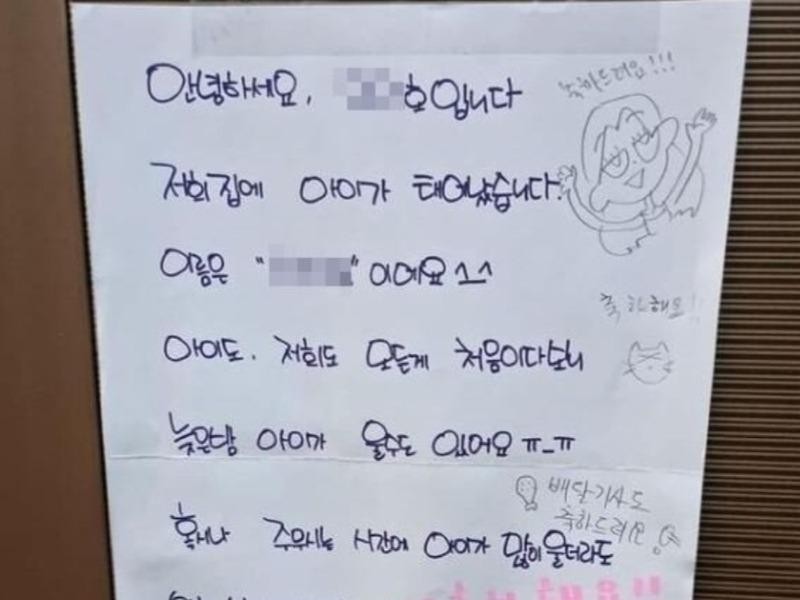 안녕하세요, 호입니다
축하드려요!!!
저희 집에 아이가 태어났습니다.
이름은 " "이에요 ^_^
축하해요!!
아이도, 저희도 모든게 처음이다보니
늦은밤 아이가 울수도 있어요 ㅠ_ㅠ
배달기사도
축하드려요!
혹시나 주무시는 시간에 아이가 많이 울더라도